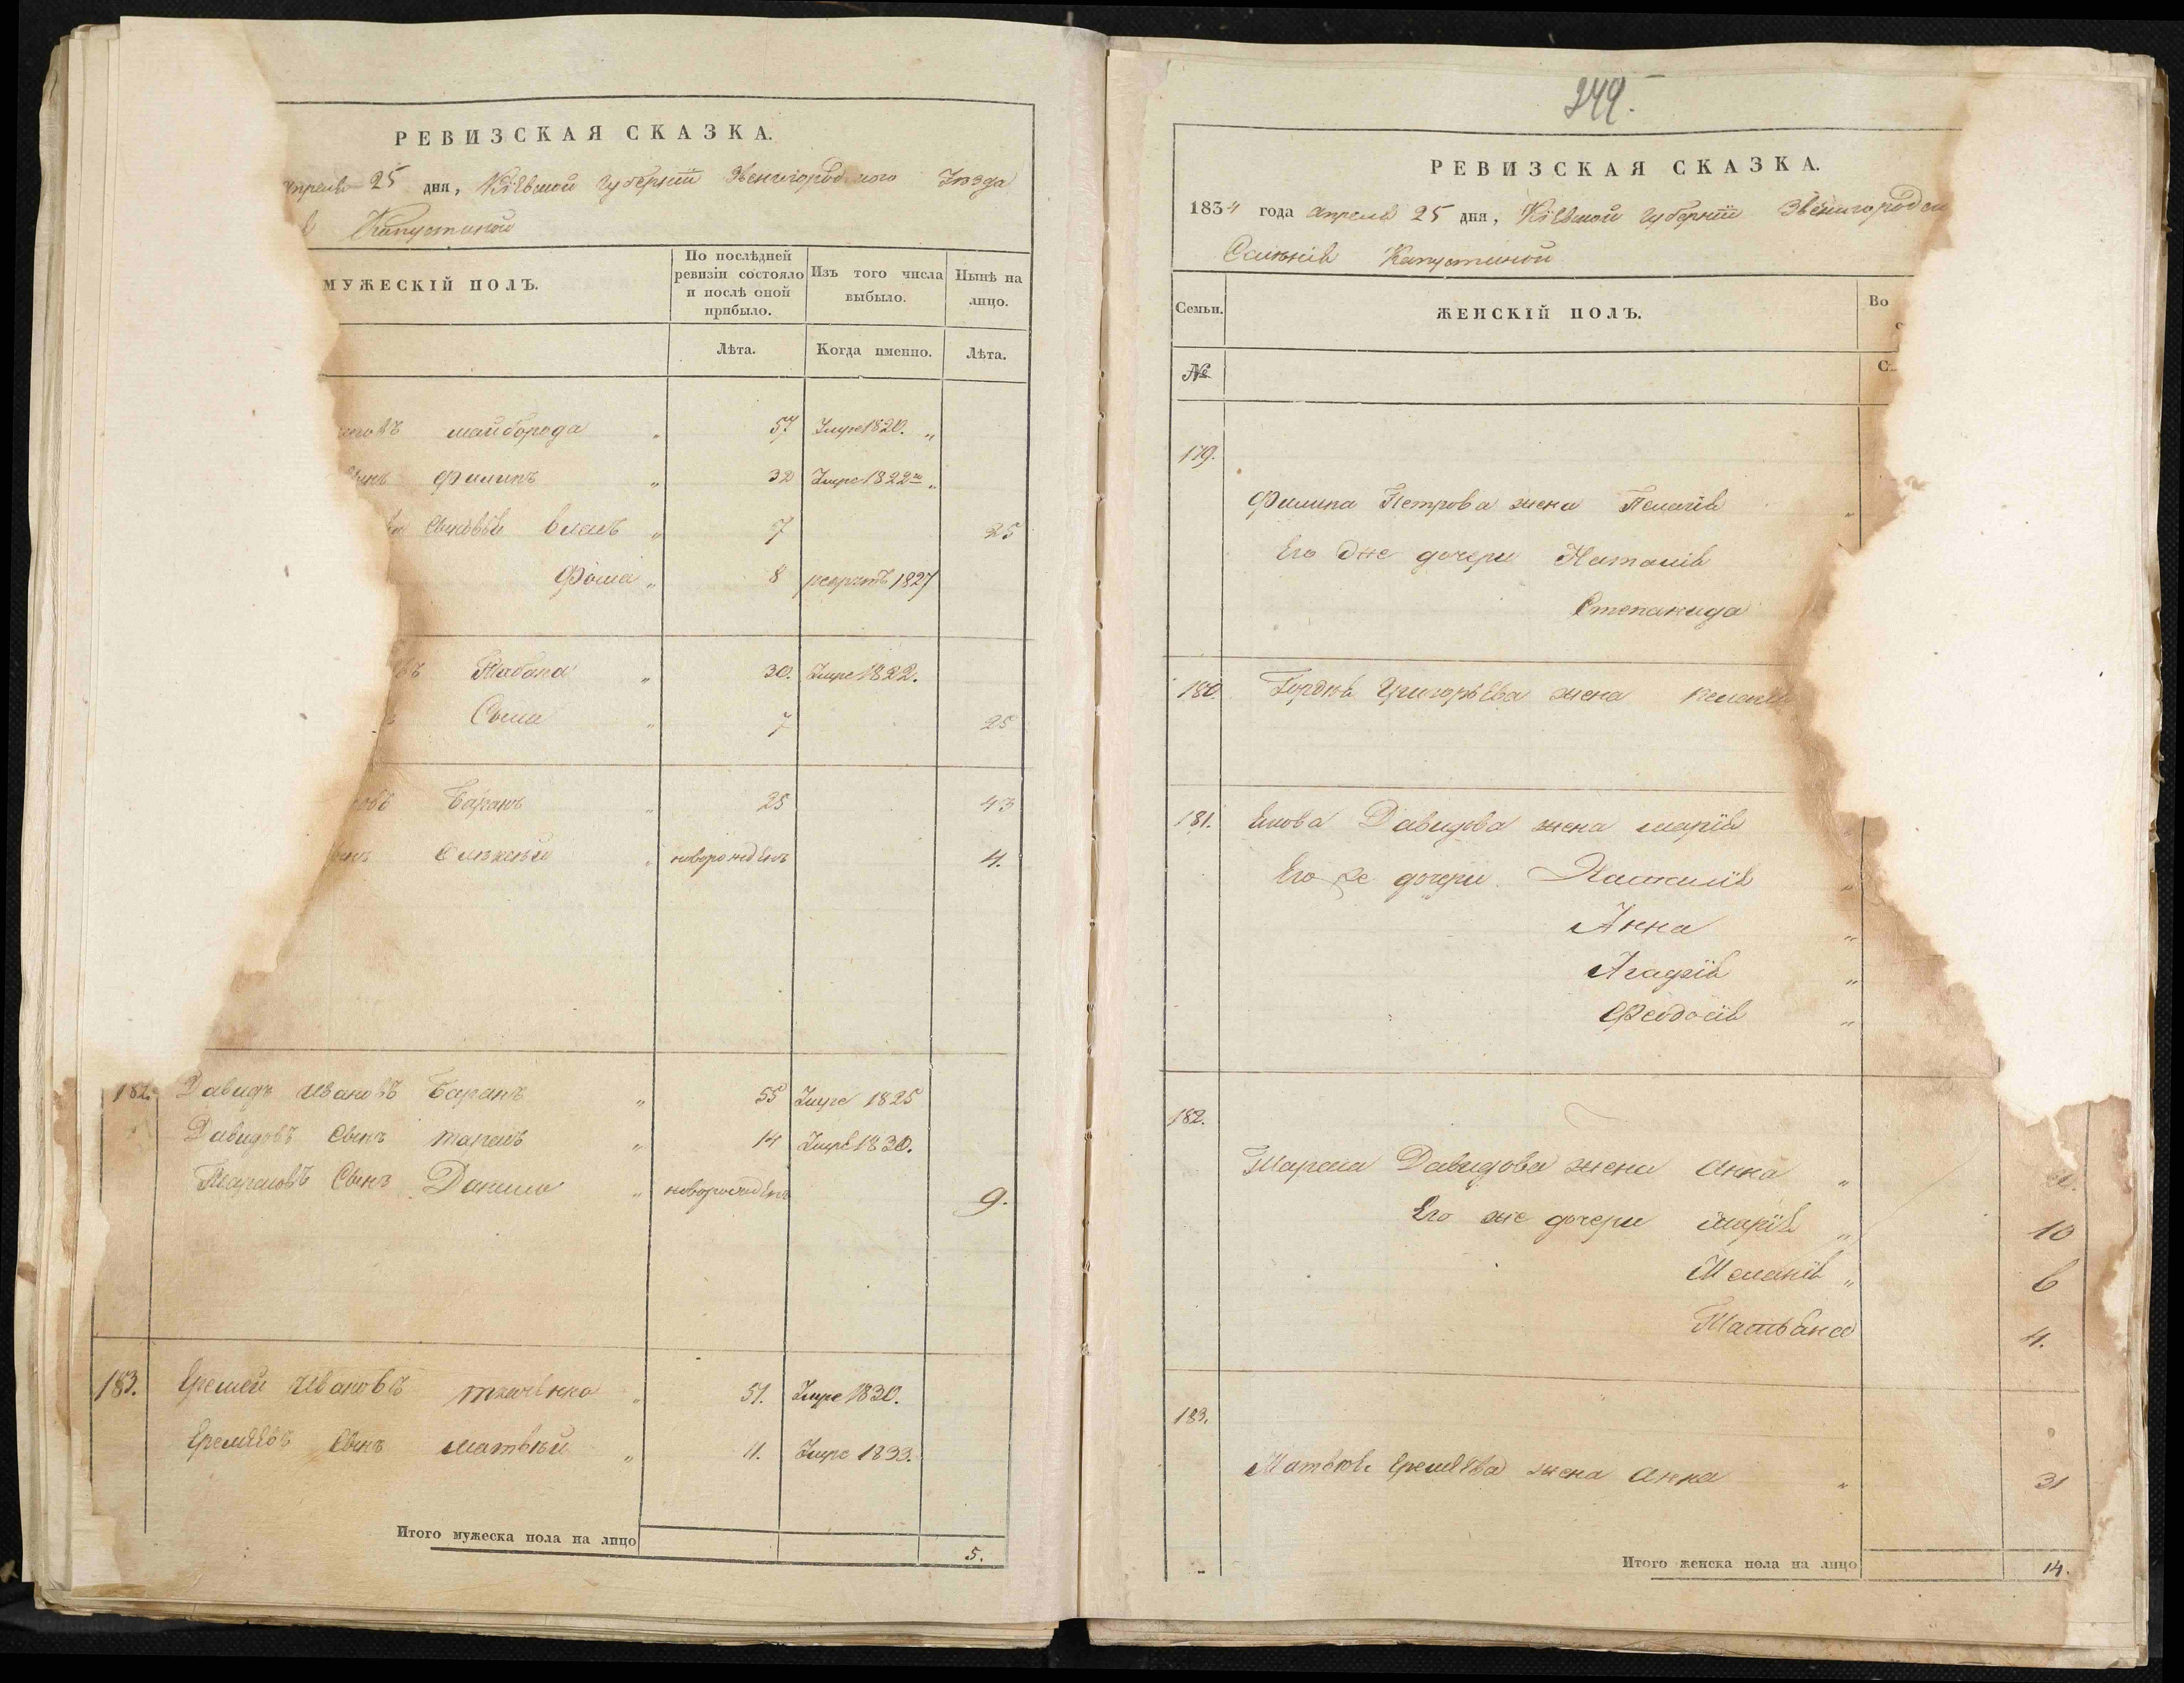 РЕВИЗСКАЯ СКАЗКА.
25 дня, Кіевской губерніи Звенигородского Уезда
Капустиной
МУЖЕСКІЙ ПОЛЪ.
По послѣдней ревизіи состояло и послѣ оной прибыло.
Изъ того числа выбыло.
Нынѣ на лицо.
Лѣта.
Когда именно.
Лѣта.
майборода " 57 Умре 1820. "
Филипъ " 32 Умре 1822го "
Сыновья Власъ " 7 25
Фома " 8 рекрутъ 1827
" 30. Умре 1822.
" 7 25
Баранъ " 25 43
" новорожденъ 4.
182. Давидъ Ивановъ Баранъ " 55 Умре 1825
Давидовъ Сынъ тарасъ " 14 Умре 1830.
Тарасовъ Сынъ Данило " новорожденъ 9.
183. Еремей Ивановъ ткаченко " 51. Умре 1830.
Еремеевъ Сынъ матвѣй " 11. Умре 1833.
Итого мужеска пола на лицо
5.
249.
РЕВИЗСКАЯ СКАЗКА.
1834 года апреля 25 дня, Кіевской губерніи
Капустиной
Семьи.
ЖЕНСКІЙ ПОЛЪ.
Во
С
№
179.
Филипа Петрова жена Пелагія "
Его же дочери Наталія
Степанида
180. Григорьева жена
181. Якова Давидова жена марія
Его же дочери "
Анна "
Агафія "
Феодосія "
182.
Тараса Давидова жена анна "
Его же дочери марія " 10
Меланія " 6
Татьяна 4.
183.
Матвея Еремеева жена анна " 31
Итого женска пола на лицо
14.